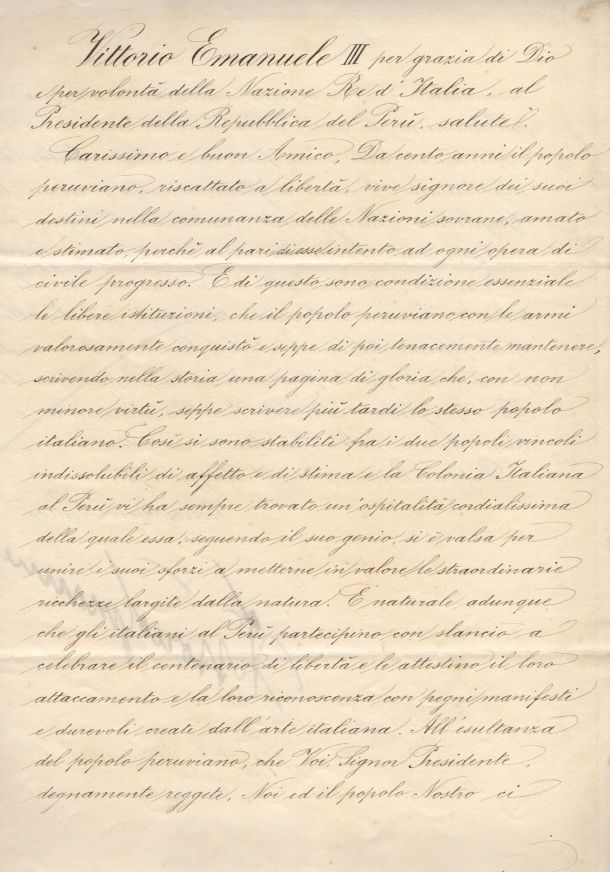 Vittorio Emanuele III per grazia di Dio
e per volontà della Nazione Re d'Italia, al
Presidente della Repubblica del Perù, salute.
Carissimo e buon Amico, Da cento anni il popolo
peruviano, riscattato a libertà, vive signore dei suoi
destini nella comunanza delle Nazioni sovrane, amato
e stimato, perchè al pari di esse intento ad ogni opera di
civile progresso. E di questo sono condizione essenziale
le libere istituzioni, che il popolo peruviano con le armi
valorosamente conquistò e seppe di poi tenacemente mantenere,
scrivendo nella storia una pagina di gloria che, con non
minore virtù, seppe scrivere più tardi lo stesso popolo
italiano. Così si sono stabiliti fra i due popoli vincoli
indissolubili di affetto e di stima e la Colonia Italiana
al Perù vi ha sempre trovato un'ospitalità cordialissima
della quale essa, seguendo il suo genio, si è valsa per
unire i suoi sforzi a metterne in valore le straordinarie
ricchezze largite dalla natura. E naturale adunque
che gli italiani al Perù partecipino con slancio a
celebrare il centenario di libertà e le attestino il loro
attaccamento e la loro riconoscenza con pegni manifesti
e durevoli creati dall'arte italiana. All'esultanza
del popolo peruviano, che Voi, Signor Presidente,
degnamente reggete, Noi ed il popolo Nostro ci